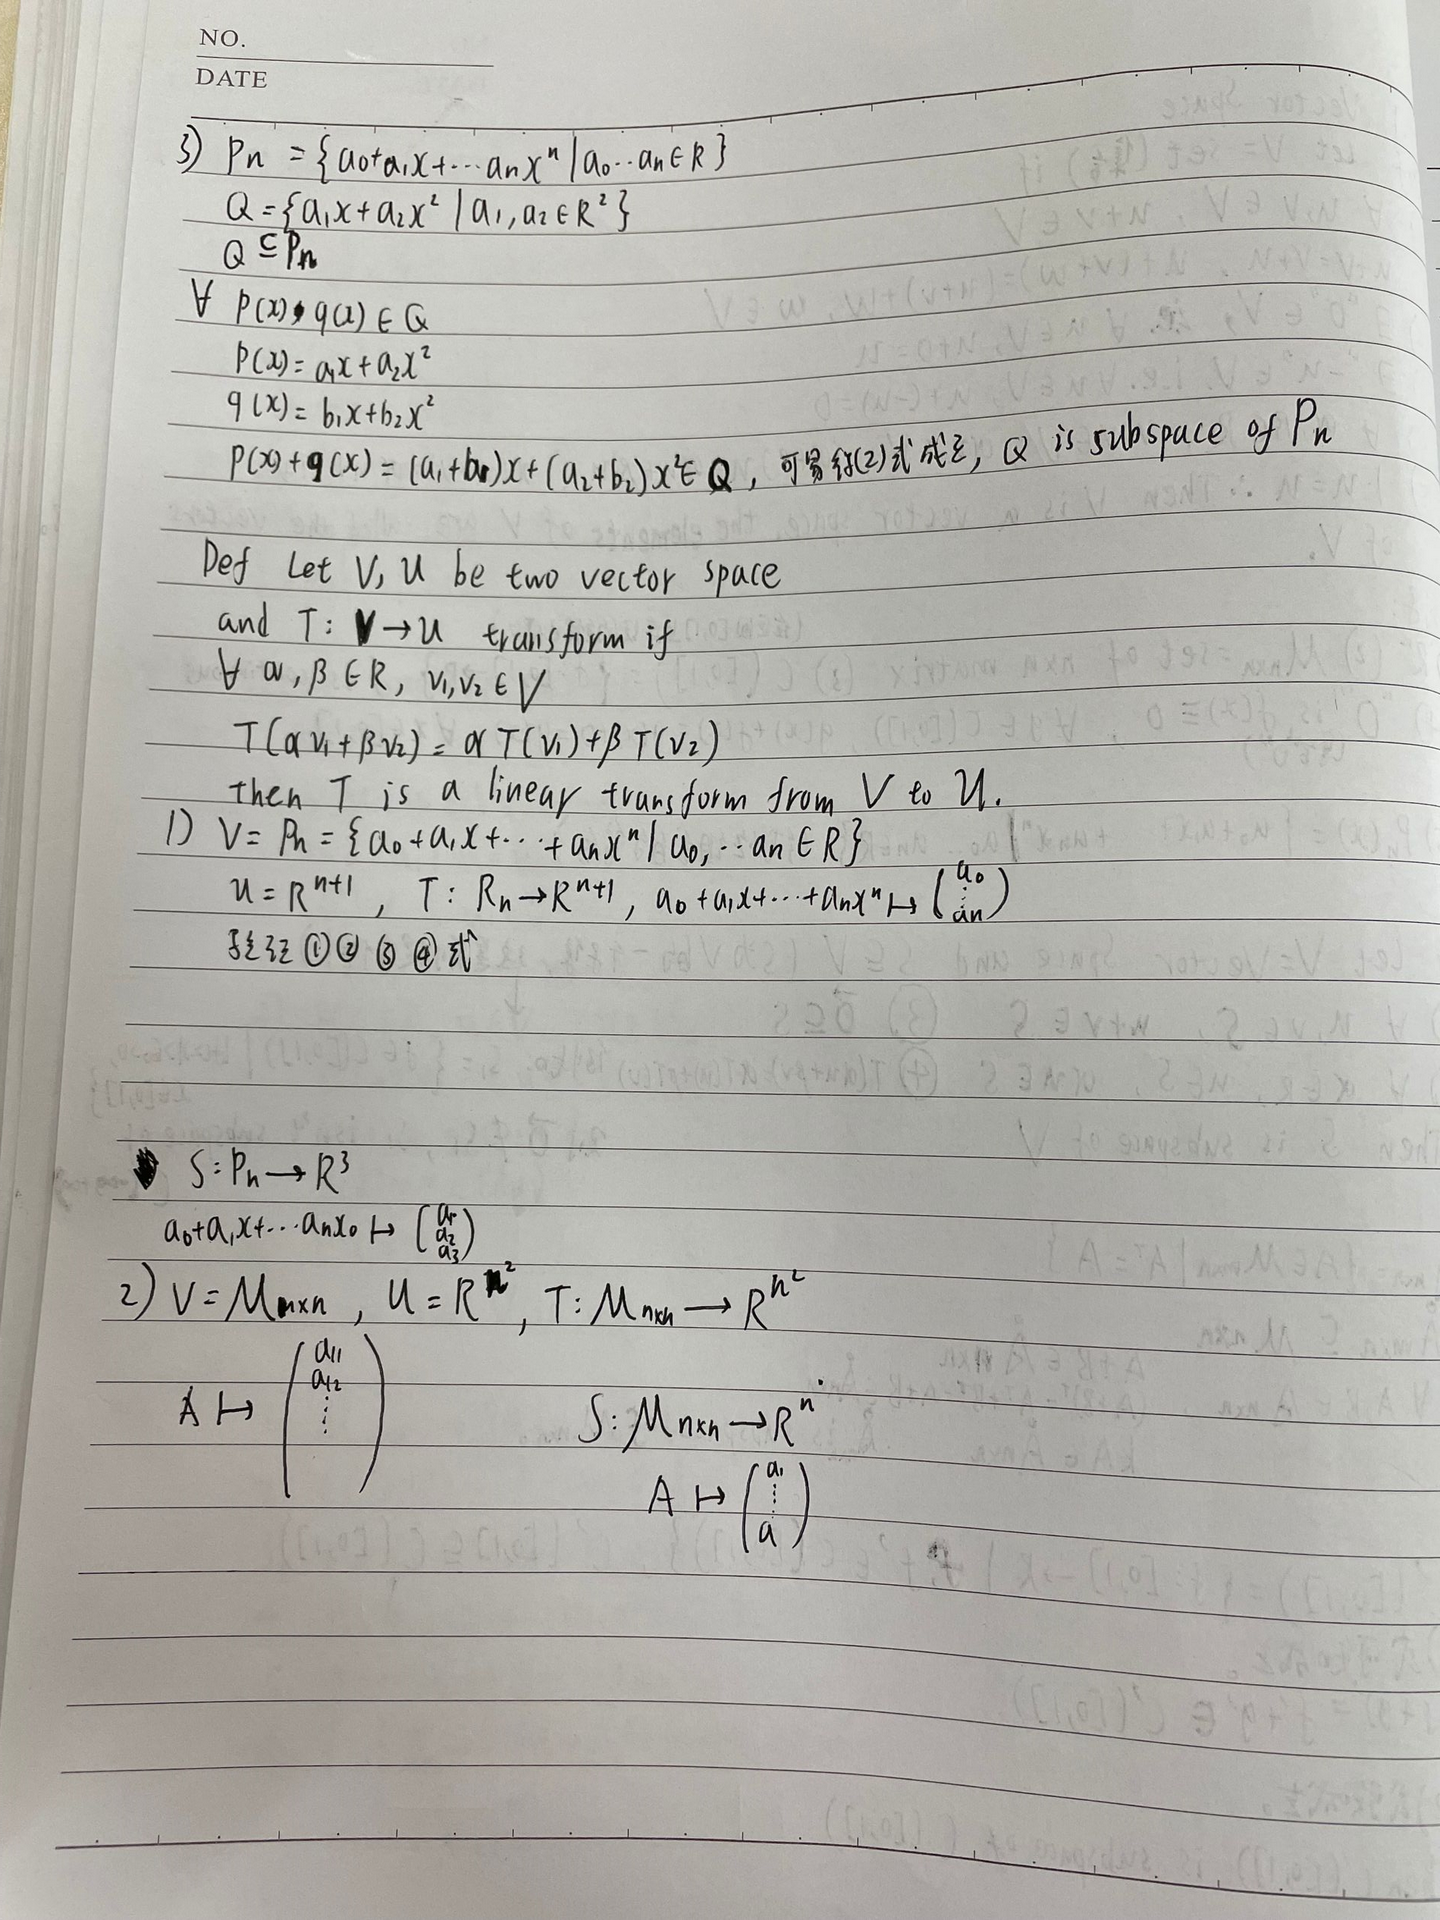 NO.
DATE
3) Pn = {a0+a1x+⋯anxⁿ | a0⋯an∈R}
Q={a1x+a2x² | a1,a2∈R²}
Q⊆Pn
∀ p(x), q(x)∈Q
P(x)= a1x+a2x²
q(x)= b1x+b2x²
p(x)+q(x)=(a1+b1)x+(a2+b2)x²∈Q, 可易得(2)式成立, Q is subspace of Pn
Def Let V, U be two vector space
and T: V→U transform if
∀ α, β∈R, v1,v2∈V
T(αv1+βv2)=αT(v1)+βT(v2)
then T is a linear transform from V to U.
1) V= Pn={a0+a1x+⋯+anxⁿ | a0,⋯an∈R}
U=Rⁿ⁺¹, T: Rn→Rⁿ⁺¹, a0+a1x+⋯+anxⁿ↦(a0⋮an)
验证①②③④式
S: Pn→R³
a0+a1x+⋯anx0↦(a1 a2 a3)
2) V=Mn×n, U=Rⁿ², T: Mn×n→Rⁿ²
A↦(a11 a12 ⋮)
S: Mn×n→Rⁿ
A↦(a1 ⋮ a)